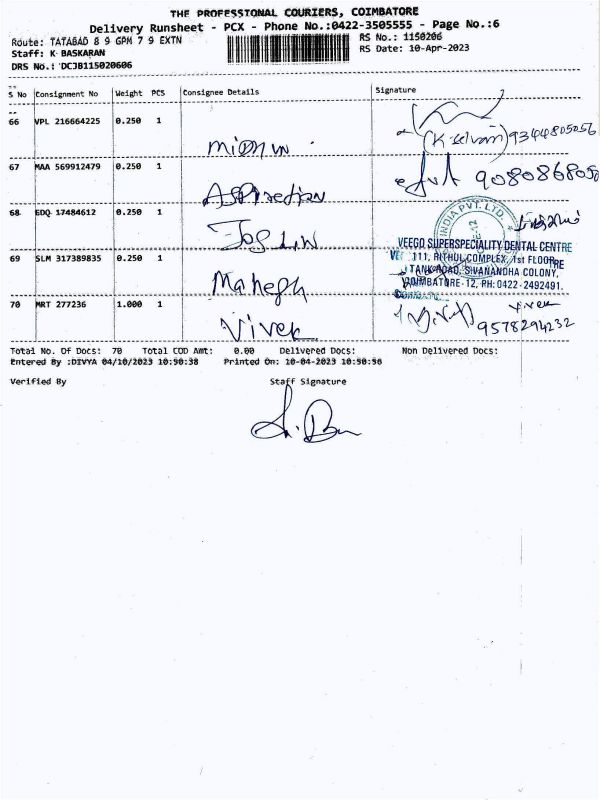 THE PROFESSIONAL COURIERS, COIMBATORE
Delivery Runsheet - PCX - Phone No.:0422-3505555 - Page No.:6
Route: TATABAD 8 9 GPM 7 9 EXTN
RS No.: 1150206
Staff: K BASKARAN
RS Date: 10-Apr-2023
DRS No.: DCJB115020606
S No Consignment No Weight PCS Consignee Details Signature
66 VPL 216664225 0.250 1
(K. selvam) 9344805056
67 MAA 569912479 0.250 1
68 EDQ 17484612 0.250 1
INDIA PVT. LTD.
VEEGO SUPERSPECIALITY DENTAL CENTRE
111, RITHUL COMPLEX, 1st FLOOR,
TANK ROAD, SIVANANDHA COLONY,
COIMBATORE-12, PH: 0422-2492491.
69 SLM 317389835 0.250 1 Mahesh
70 MRT 277236 1.000 1 Vivek
Vivek
9578294232
Total No. Of Docs: 70 Total COD Amt: 0.00 Delivered Docs: Non Delivered Docs:
Entered By :DIVYA 04/10/2023 10:50:38 Printed On: 10-04-2023 10:50:56
Verified By Staff Signature